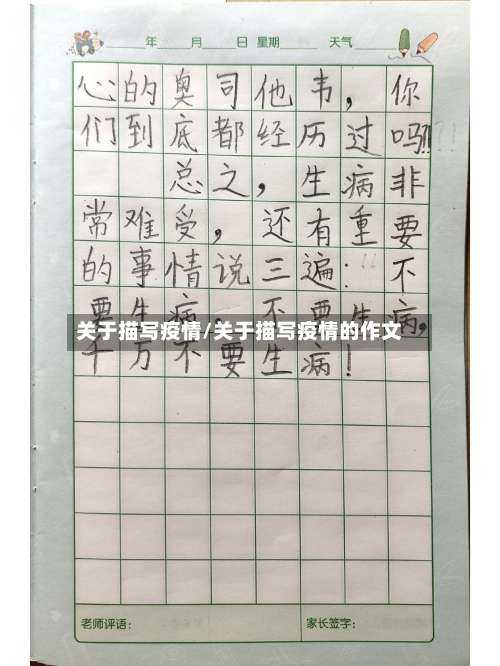 年 月 日 星期 天气
心的奥司他韦，你
们到底都经历过吗?!!
总之，生病非
常难受，还有重要
的事情说三遍：“不
要生病，不要生病，
关于描写疫情/关于描写疫情的作文
千万不要生病！
老师评语： 家长签字：